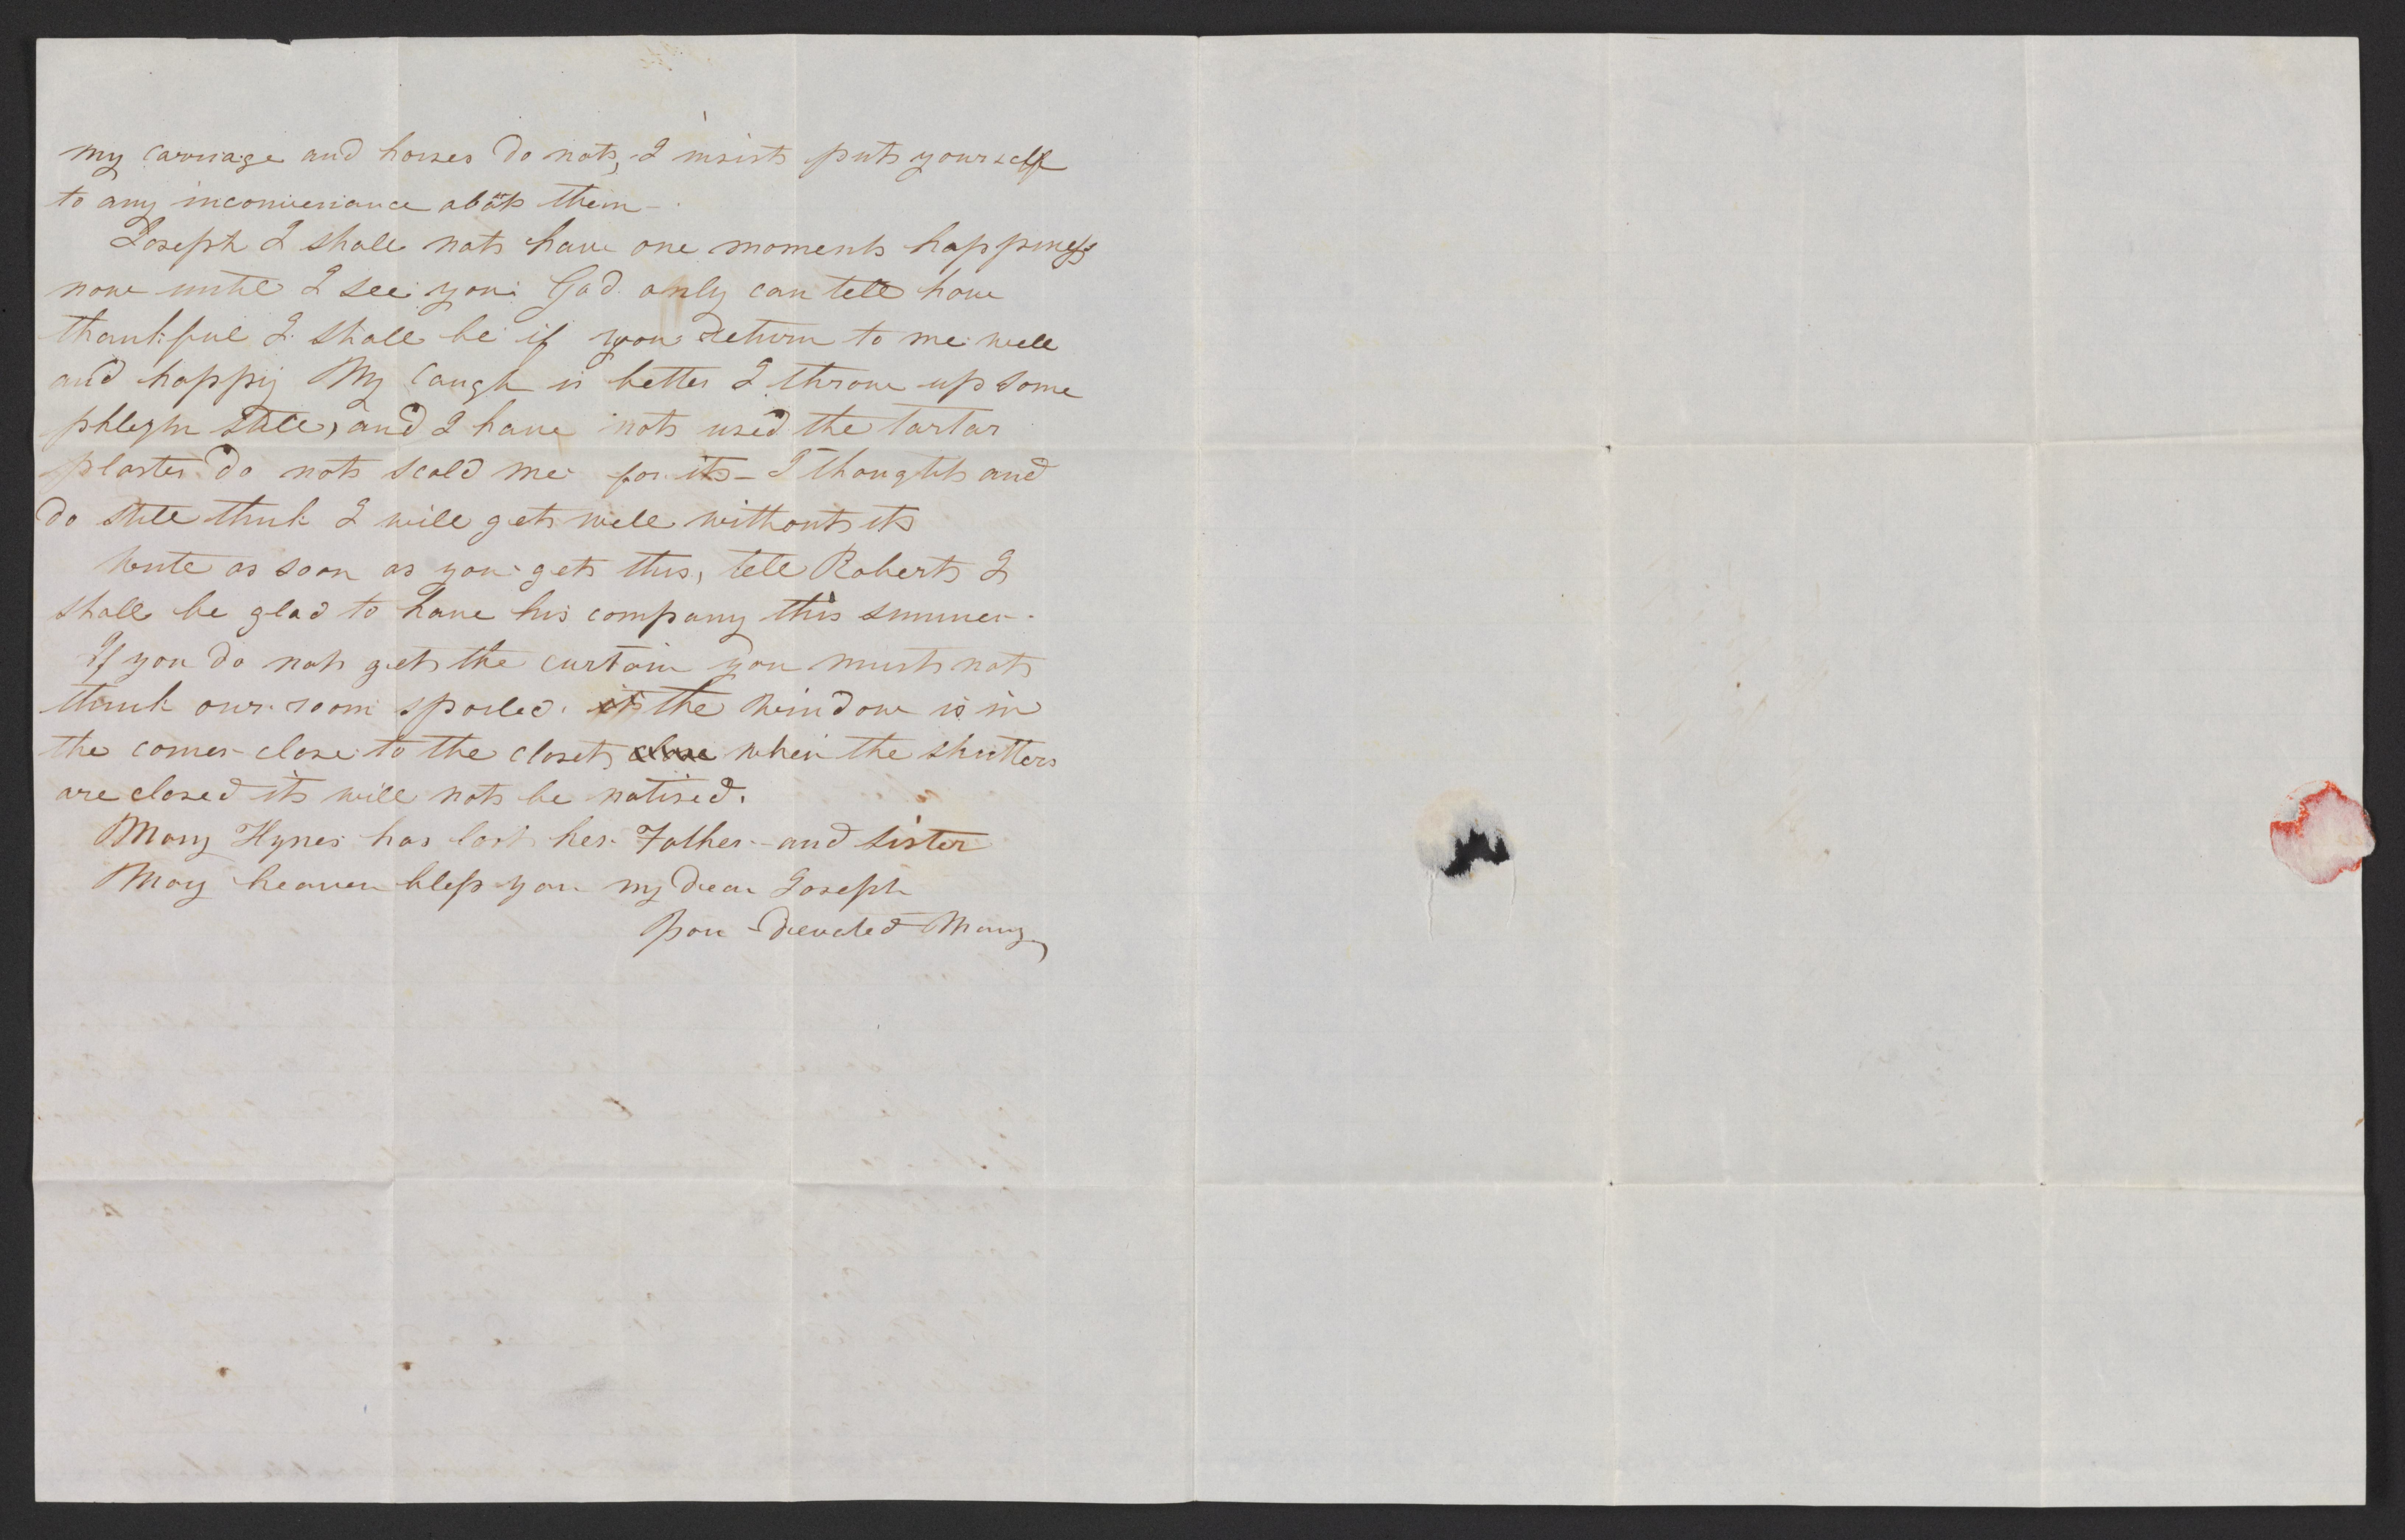 my carriage and horses do not, I insist put yourself
to any inconveniance about them -
Joseph I shall not have one moments happiness
now until I see you God only can tell how
thankful I shall be if you return to me well
and happy My Cough is better I throw up some
phlegm still, and I have not used the Tartar
plaster do not scold me for it - I thought and
do still think I will get well without it
Write as soon as you get this, tell Robert I
shall be glad to have his company this summer.
If you do not get the curtain you must not
think our room spoiled. the window is in
the corner close to the closet close when the shutters
are closed it will not be notised.
Mary Hynes has lost her Father - and sister
May heaven bless you my dear Joseph
Your devoted Mary